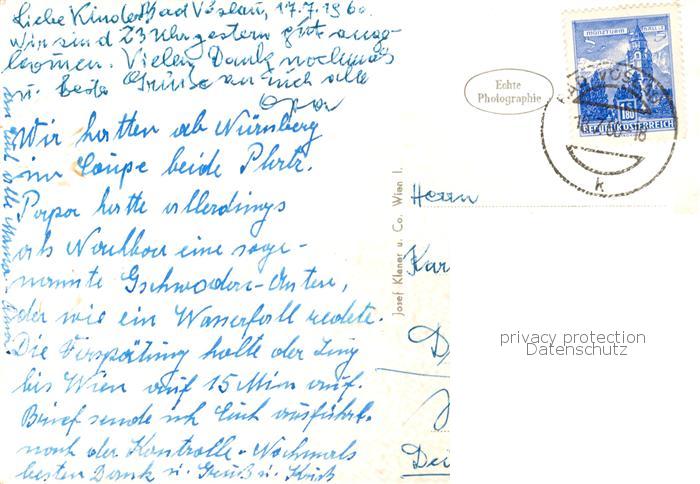 Liebe Kinder! Bad Vöslau, 17.7.1960
Wir sind 23 Uhr gestern gut ange-
kommen. Vielen Dank nochmals
u. beste Grüße an Euch alle
Opa
Wir hatten ab Nürnberg
im Coupe beide Platz.
Papa hatte allerdings
als Nachbar eine soge-
nannte Gschwader-Anten,
der wie ein Wasserfall redete.
Die Verspätung holte der Zug
bis Wien auf 15 Min auf.
Brief sende ich Euch ausführl.
nach der Kontrolle. Nochmals
besten Dank u. Gruß u. Kuß
an Euch alle Mama
Echte
Photographie
MÜNZTURM HALL
S 1.80
REPUBLIK ÖSTERREICH
BAD VÖSLAU
k
Josef Klaner u. Co. Wien I.
Herrn
Kar
D
Dei
privacy protection
Datenschutz